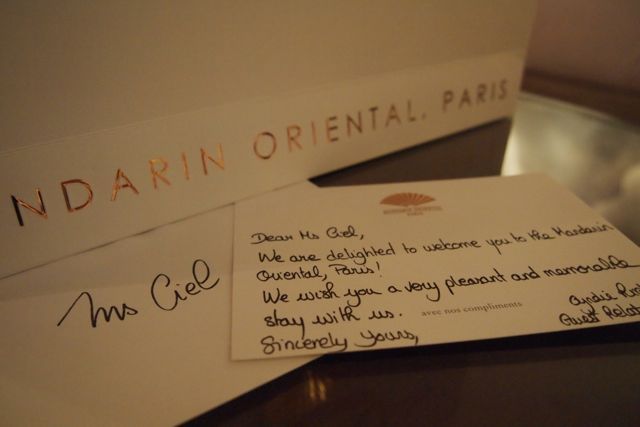 NDARIN ORIENTAL, PARIS
Ms Ciel
MANDARIN ORIENTAL
PARIS
Dear Ms Ciel,
We are delighted to welcome you to the Mandarin
Oriental, Paris!
We wish you a very pleasant and memorable
stay with us.
avec nos compliments
Sincerely Yours,
Guest Relat